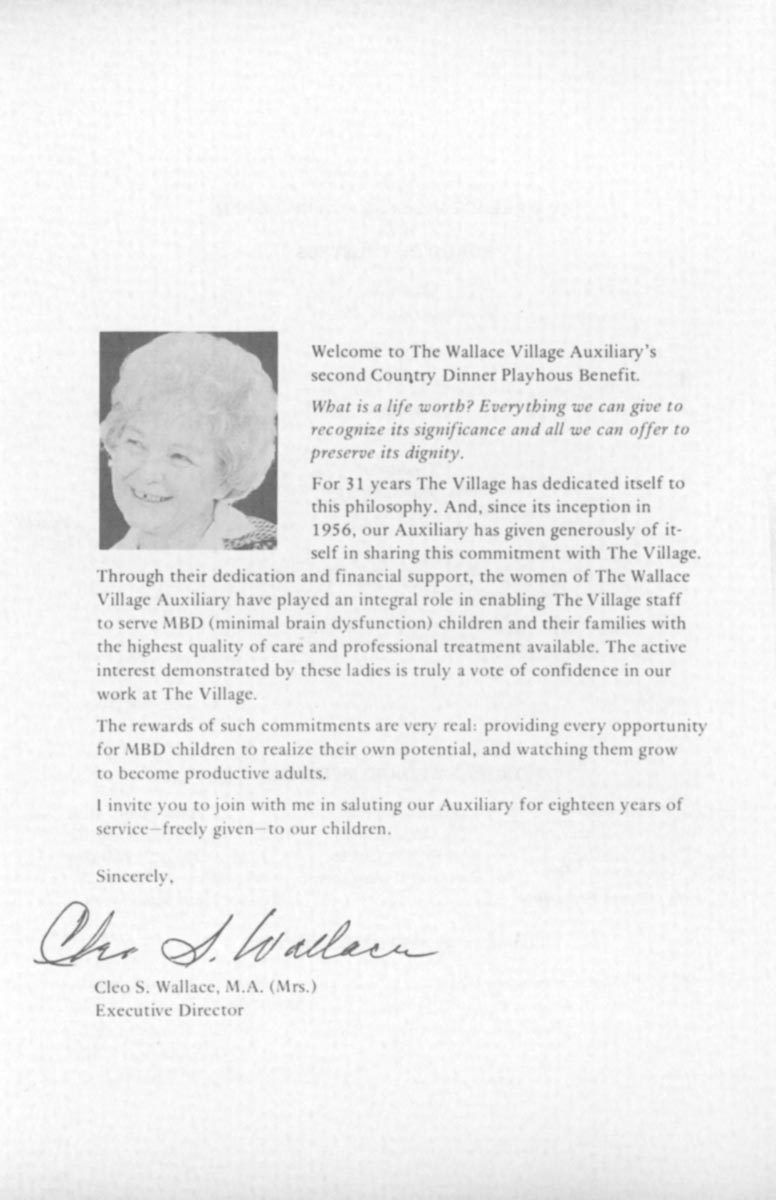 Welcome to The Wallace Village Auxiliary's
second Country Dinner Playhous Benefit.
What is a life worth? Everything we can give to
recognize its significance and all we can offer to
preserve its dignity.
For 31 years The Village has dedicated itself to
this philosophy. And, since its inception in
1956, our Auxiliary has given generously of it-
self in sharing this commitment with The Village.
Through their dedication and financial support, the women of The Wallace
Village Auxiliary have played an integral role in enabling The Village staff
to serve MBD (minimal brain dysfunction) children and their families with
the highest quality of care and professional treatment available. The active
interest demonstrated by these ladies is truly a vote of confidence in our
work at The Village.
The rewards of such commitments are very real: providing every opportunity
for MBD children to realize their own potential, and watching them grow
to become productive adults.
I invite you to join with me in saluting our Auxiliary for eighteen years of
service—freely given—to our children.
Sincerely,
Cleo S. Wallace
Cleo S. Wallace, M.A. (Mrs.)
Executive Director